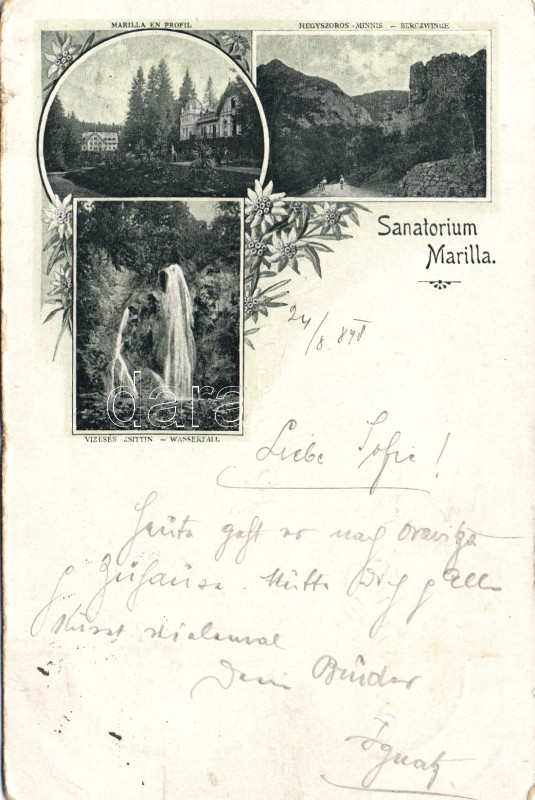 MARILLA EN PROFIL
HEGYSZOROS - MINNIS - BERGZWINGE
Sanatorium
Marilla.
24/8 898
VIZESÉS CSITTIN - WASSERFALL
darab
Liebe Sofie!
Heute geht es nach Oravitza
Zuhause. Mutter Dich Alle
küsst vielemal
Dein Bruder
Ignatz